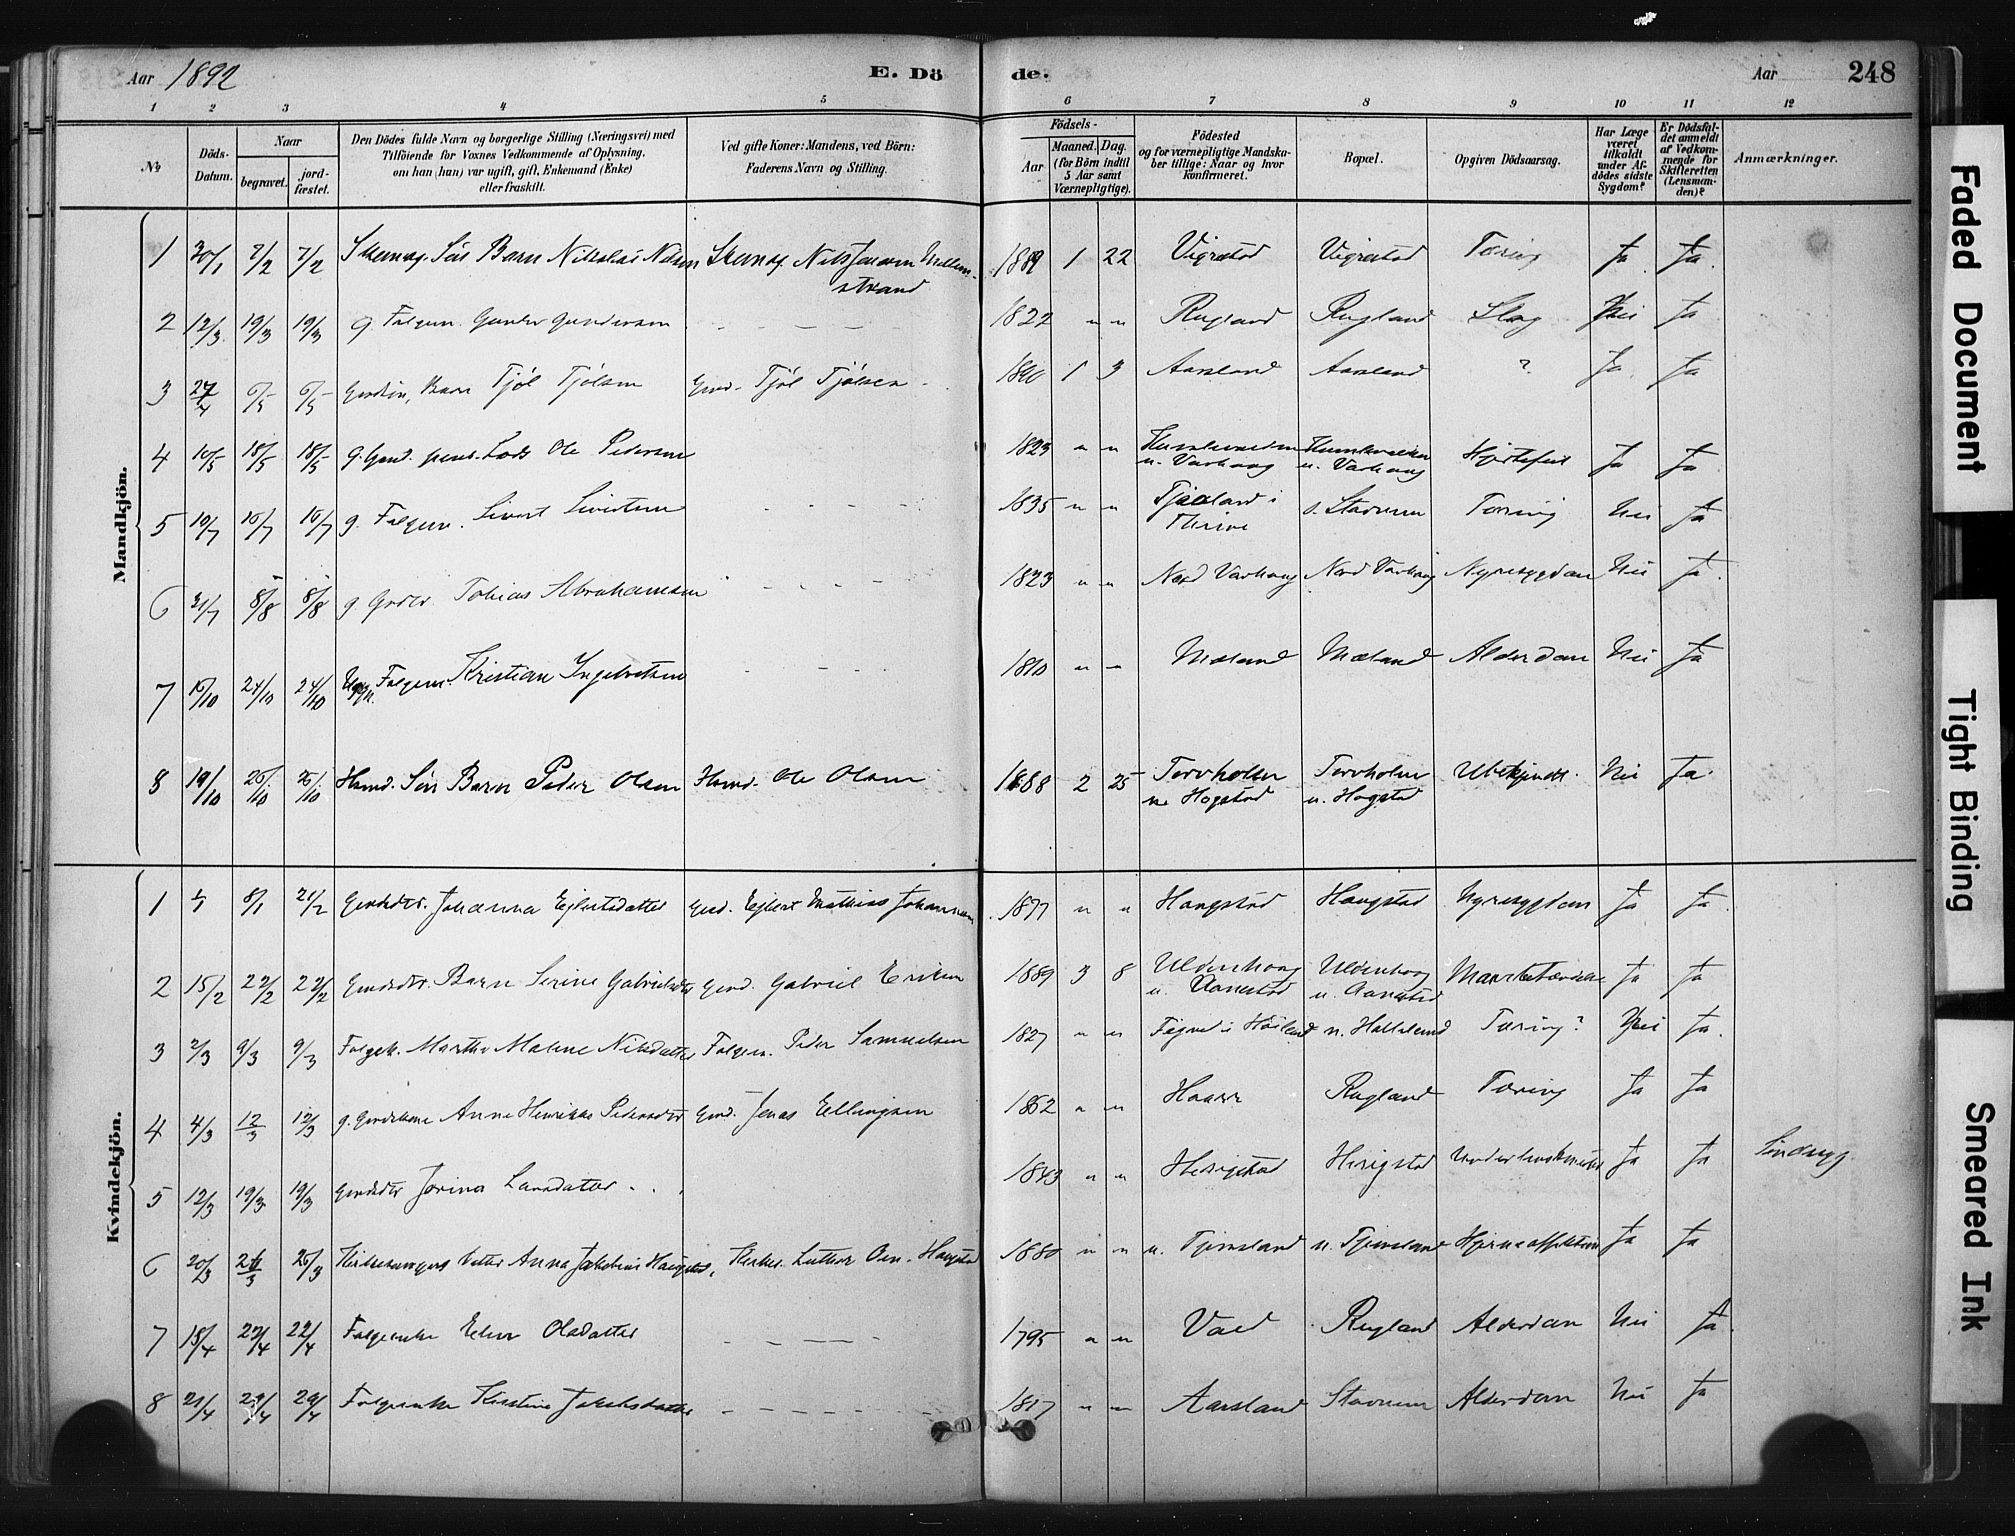 Aar 1892
E. Dö
de.
Aar
248
1 2 3 4 5 6 7 8 9 10 11 12
No
Döds-
Datum.
Naar
begravet.
jord-
fæstet.
Den Dödes fulde Navn og borgerlige Stilling (Næringsvei) med
Tilföiende for Voxnes Vedkommende af Oplysning,
om han (hun) var ugift, gift, Enkemand (Enke)
eller fraskilt.
Ved gifte Koner: Mandens, ved Börn:
Faderens Navn og Stilling.
Födsels-
Aar
Maaned. Dag.
(for Börn indtil
5 Aar samt
Værnepligtige).
Födested
og for værnepligtige Mandska-
ber tillige: Naar og hvor
konfirmeret.
Bopæl.
Opgiven Dödsaarsag.
Har Læge
været
tilkaldt
under Af-
dödes sidste
Sygdom?
Er Dödsfal-
det anmeldt
af Vedkom-
mende for
Skifteretten
(Lensman-
den)?
Anmærkninger.
Mandkjön.
1 30/1 7/2 7/2 Søn Barn Nikolai Nilsen Nils Jonasen
strand 1889 1 22 Vigrestad Vigrestad Tæring Ja Ja
2 12/3 19/3 19/3 g. Folgem. Gunder Gundersen 1822 " " Rugland Rugland Slag Nei Ja
3 27/4 6/5 6/5 Barn Tjöl Tjölsen Grd. Tjöl Tjölsen 1890 1 3 Aarsland Aarsland ? Ja Ja
4 10/5 18/5 18/5 g. Grd. pens. Lods Ole Pedersen 1823 " " n. Varhaug n. Varhaug Hjertefeil Ja Ja
5 10/7 16/7 16/7 g. Folgem. Sivert Sivertsen 1835 " " Tjaaland i
Thime s. Stavnem Tæring Nei Ja
6 31/7 8/8 8/8 g. Grdbr. Tobias Abrahamsen 1823 " " Nord Varhaug Nord Varhaug Nyresygdom Nei Ja
7 16/10 24/10 24/10 Folgem. Kristian Ingebretsen 1810 " " Mæland Mæland Alderdom Nei Ja
8 19/10 26/10 26/10 Husmd. Søn Barn Peder Olsen Husmd. Ole Olsen 1888 2 25 Torvholen
n. Hogstad Torvholen
n. Hogstad Ubekjendt. Nei Ja
Kvindekjön.
1 8/1 21/2 Grdsdtr. Johanna Ejlertsdatter Grd. Ejlert Mathias Johannesen 1877 " " Haugstad Haugstad Nyresygdom Ja Ja
2 15/2 22/2 22/2 Grdsdtr. Barn Serine Gabrielsdtr Grd. Gabriel Eriksen 1889 3 8 Uldenhaug
n. Aanestad Uldenhaug
n. Aanestad Ja Ja
3 2/3 9/3 9/3 Folgek. Marthe Malene Nilsdatter Folgem. Peder Samuelsen 1827 " " i Höiland n. Halleland Tæring? Nei Ja
4 4/3 12/3 12/3 g. Grdkone Anne Henrikas Pedersdtr Grd. Jonas Ellingsen 1862 " " Haarr Rugland Tæring Ja Ja
5 12/3 19/3 19/3 Grdsdtr Jorina Larsdatter 1843 " " Herigstad Herigstad Ja Ja Sindssyg
6 20/3 26/3 26/3 Kirkesangers Datter Anna Jakobine Haugstad, Kirkes. Luther Osm. Haugstad 1880 " " n. Tjemsland n. Tjemsland Hjerneaffektion Ja Ja
7 15/4 22/4 22/4 Folgeenke Elen Olsdatter 1795 " " Vaed Rugland Alderdom Nei Ja
8 21/4 29/4 29/4 Folgeenke Kirstine Jakobsdatter 1817 " " Aarsland Stavnem Alderdom Nei Ja
Faded Document
Tight Binding
Smeared Ink